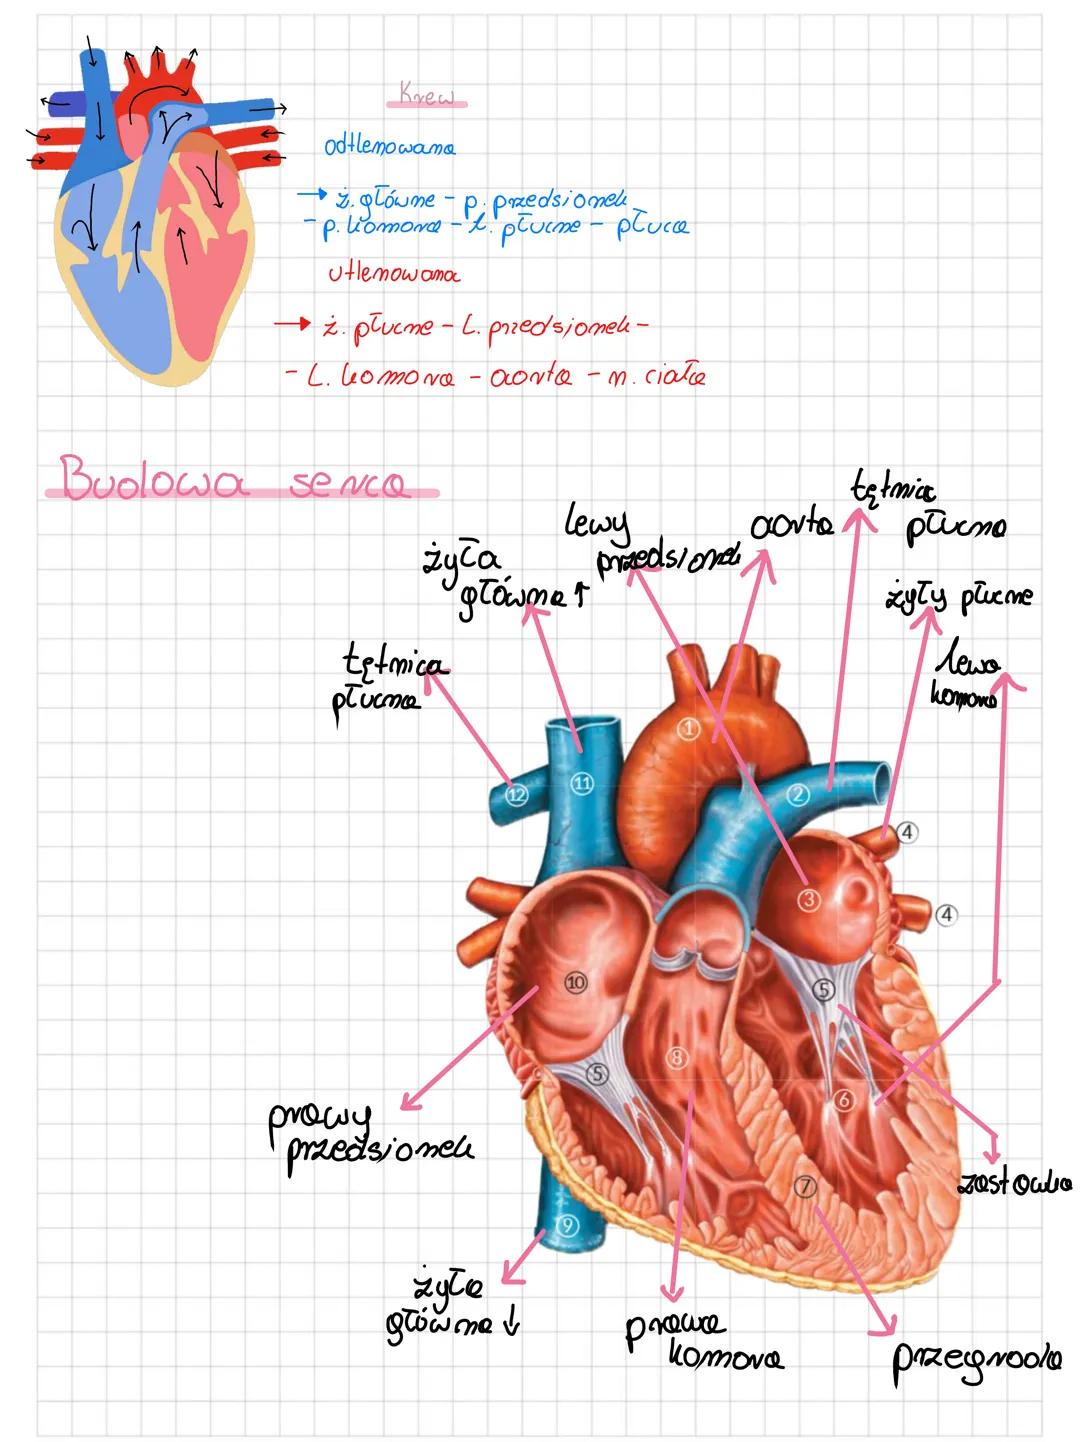 Krew
odtlenowana
→ ż. główne - p. przedsionek
- p. komora - t. płucne - płuca
utlenowana
→ ż. płucne - L. przedsionek -
- L. komora - aorta - n. ciała
Budowa serca
tętnica
płucna
aorta
lewy
przedsionek
żyła
główna ↑
żyły płucne
tętnica
płucna
lewa
komora
1
11
12
2
4
3
4
10
5
8
5
6
prawy
przedsionek
zastawka
7
9
żyła
główna ↓
prawa
komora
przegroda